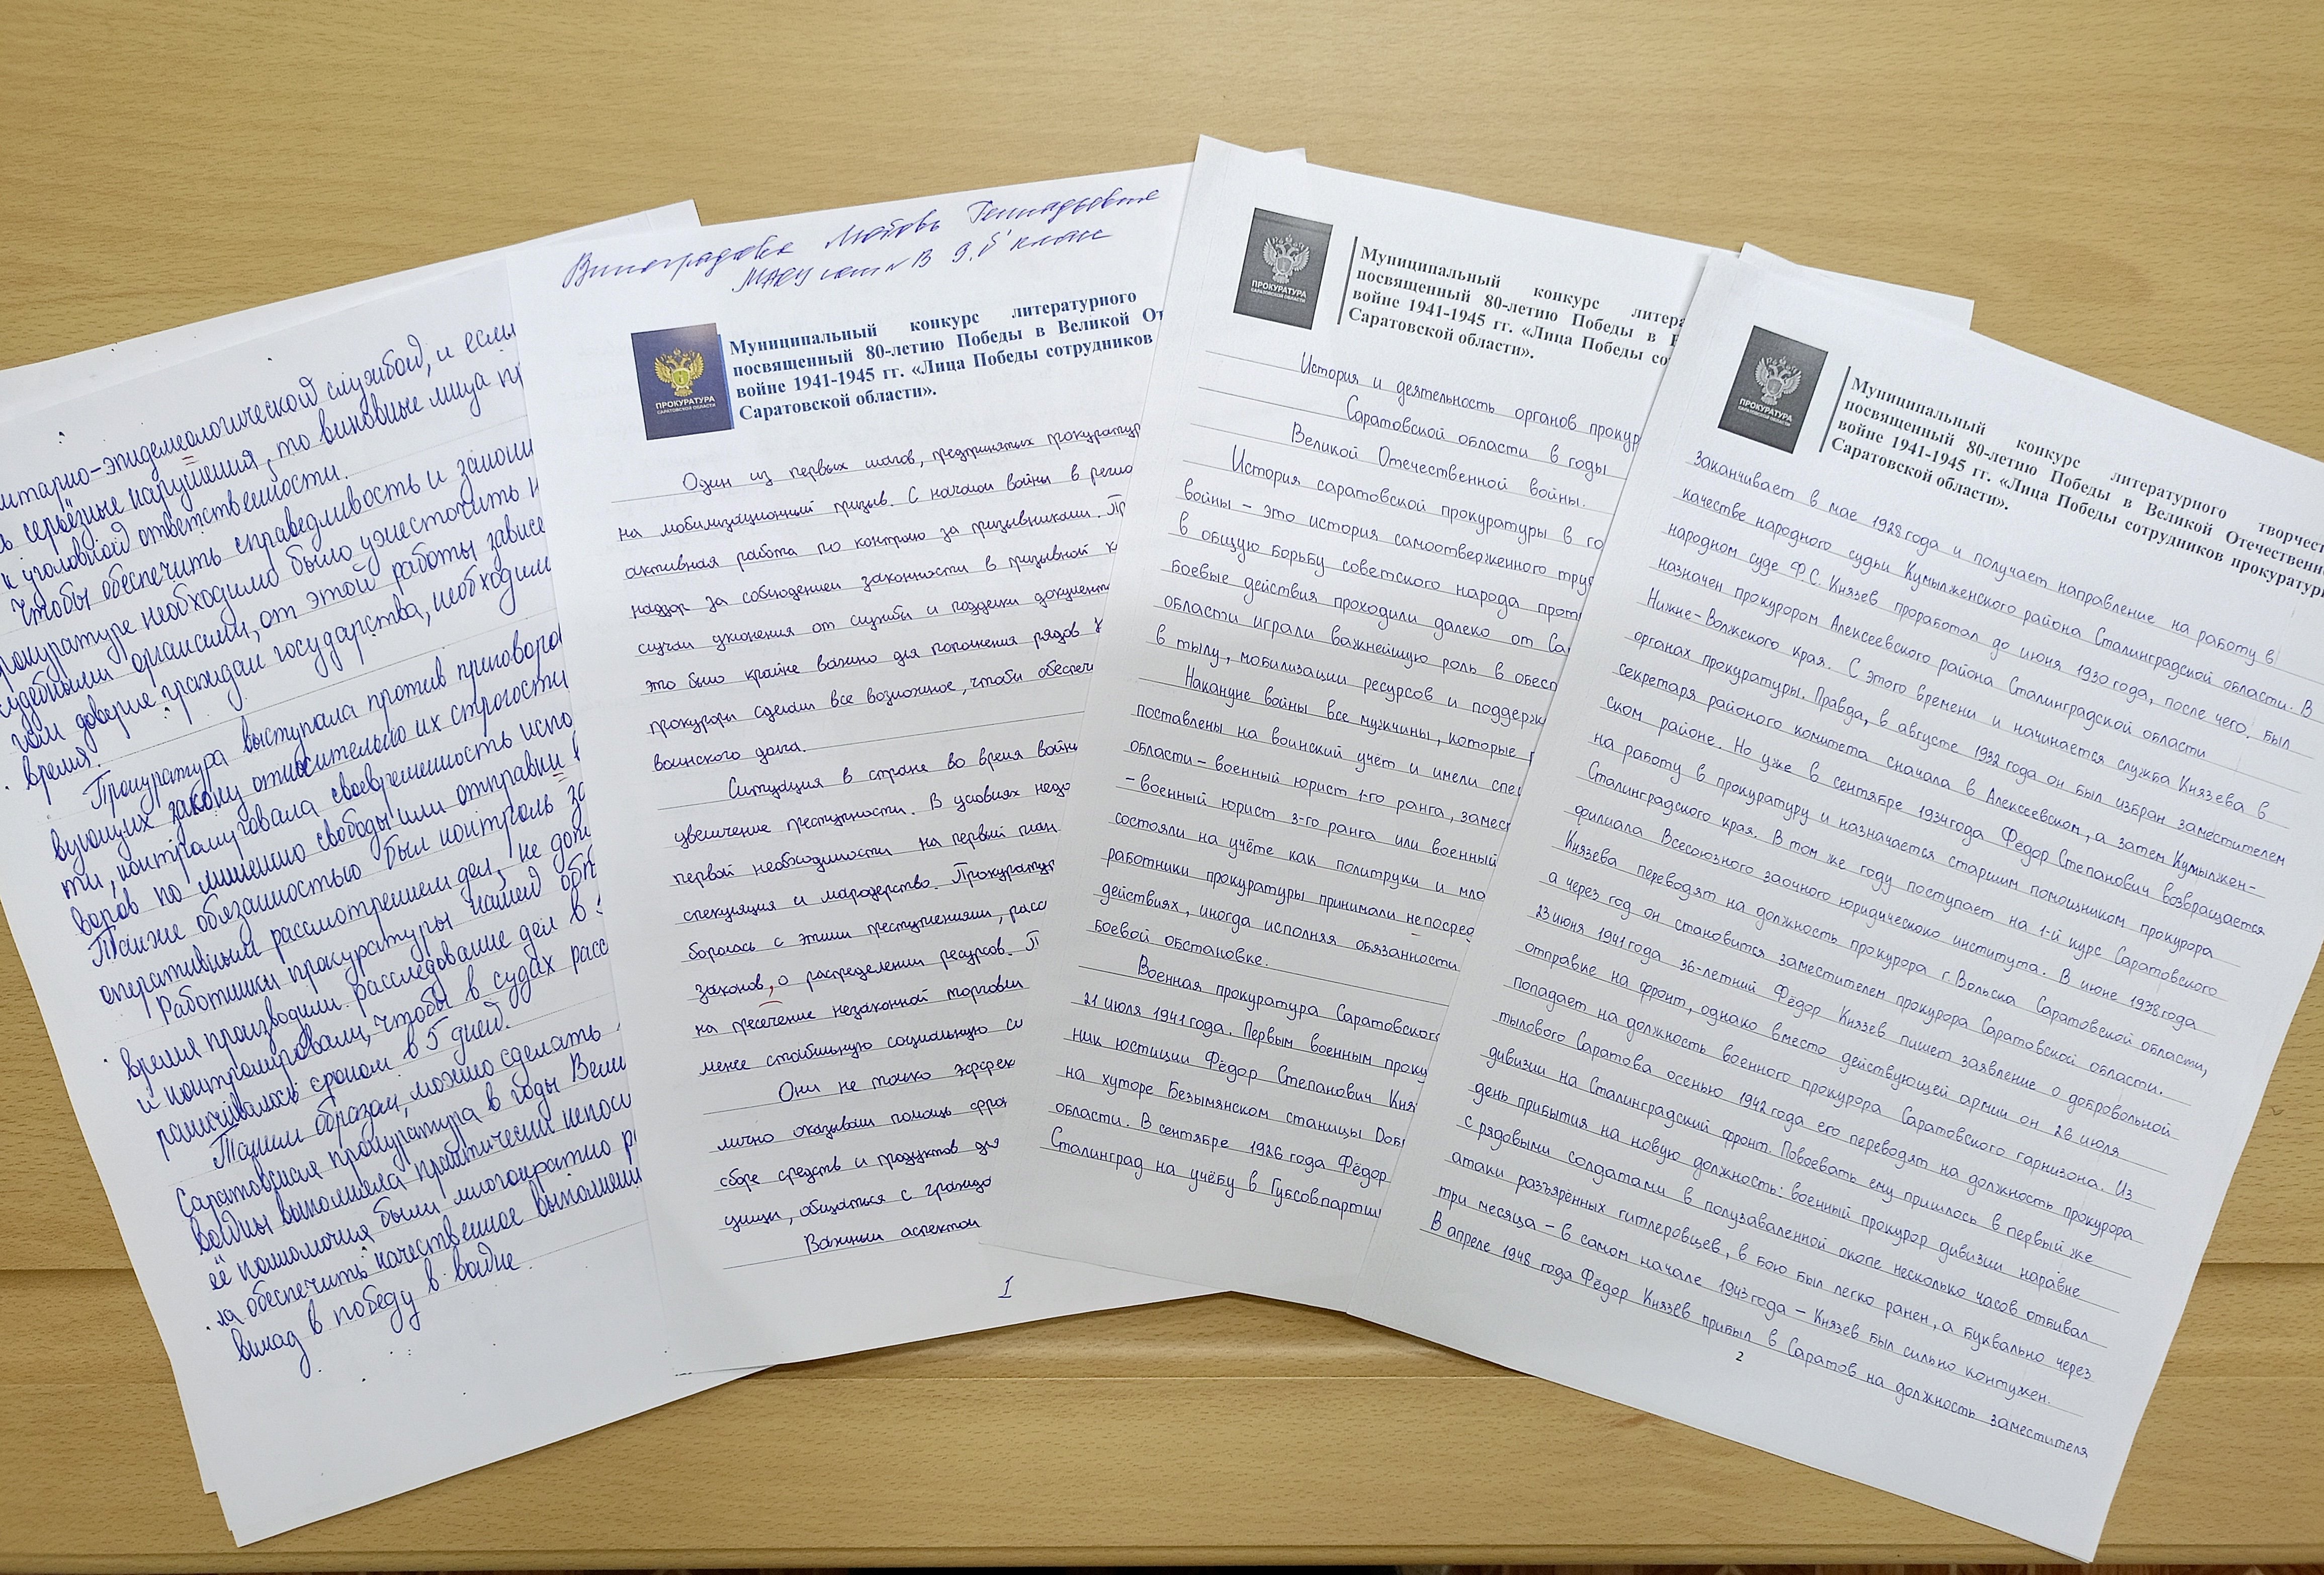 итарно-эпидемеологической службой, и если
серьёзные нарушения, то виновные лица
к уголовной ответственности.
Чтобы обеспечить справедливость и законн
прокуратуре необходимо было ужесточить
судебными органами, от этой работы зависе
доверие граждан государства, необходим
время.
Прокуратура выступала против приговоро
вующих закону относительно их строгости
ти, контролировала своевременность испо
воров по лишению свободы или отправки
Также обязанностью был контроль за
оперативным рассмотрением дел, не доп
Работники прокуратуры нашей обл
время производили расследование дел в
и контролировали, чтобы в судах расс
сроком в 5 дней.
Таким образом, можно сделать
Саратовская прокуратура в годы Вели
войны выполняла практически непоси
её полномочия были многократно
ла обеспечить качественное выполнени
вклад в победу в войне.
Виноградова Любовь Геннадьевна
9 "б" класс
ПРОКУРАТУРА
САРАТОВСКОЙ ОБЛАСТИ
Муниципальный конкурс литературного
посвященный 80-летию Победы в Великой От
войне 1941-1945 гг. «Лица Победы сотрудников
Саратовской области».
Один из первых шагов, предпринятых прокуратур
на мобилизационный призыв. С начала войны в регио
активная работа по контролю за призывниками. Пр
надзор за соблюдением законности в призывной к
случаи уклонения от службы и подделки документ
это было крайне важно для пополнения рядов
прокуроры сделали все возможное, чтобы обеспеч
воинского долга.
Ситуация в стране во время войн
увеличение преступности. В условиях недо
первой необходимости на первый план
спекуляция и мародерство. Прокурату
боролась с этими преступлениями, расс
законов, о распределении ресурсов. П
на пресечение незаконной торговли
менее стабильную социальную си
Они не только эффек
лично оказывали помощь фро
сборе средств и продуктов дл
общаться с гражда
Важным аспектом
1
ПРОКУРАТУРА
САРАТОВСКОЙ ОБЛАСТИ
Муниципальный конкурс литера
посвященный 80-летию Победы в
войне 1941-1945 гг. «Лица Победы со
Саратовской области».
История и деятельность органов прокур
Саратовской области в годы
Великой Отечественной войны.
История саратовской прокуратуры в го
войны – это история самоотверженного труд
в общую борьбу советского народа прот
боевые действия проходили далеко от Са
области играли важнейшую роль в обесп
в тылу, мобилизации ресурсов и поддерж
Накануне войны все мужчины, которые
поставлены на воинский учёт и имели спе
области – военный юрист 1-го ранга, замес
– военный юрист 3-го ранга или военный
состояли на учёте как политруки и мла
работники прокуратуры принимали непосред
действиях, иногда исполняя обязанности
боевой обстановке.
Военная прокуратура Саратовского
21 июля 1941 года. Первым военным проку
ник юстиции Фёдор Степанович Кня
на хуторе Безымянском станицы Доб
области. В сентябре 1926 года Фёдор
Сталинград на учёбу в Губсовпарти
ПРОКУРАТУРА
САРАТОВСКОЙ ОБЛАСТИ
Муниципальный конкурс литературного творчест
посвященный 80-летию Победы в Великой Отечественно
войне 1941-1945 гг. «Лица Победы сотрудников прокуратур
Саратовской области».
заканчивает в мае 1928 года и получает направление на работу в
качестве народного судьи Кумылженского района Сталинградской области. В
народном суде Ф.С. Князев проработал до июня 1930 года, после чего был
назначен прокурором Алексеевского района Сталинградской области
Нижне-Волжского края. С этого времени и начинается служба Князева в
органах прокуратуры. Правда, в августе 1932 года он был избран заместителем
секретаря районого комитета сначала в Алексеевском, а затем Кумылжен-
ском районе. Но уже в сентябре 1934 года Фёдор Степанович возвращается
на работу в прокуратуру и назначается старшим помощником прокурора
Сталинградского края. В том же году поступает на 1-й курс Саратовского
филиала Всесоюзного заочного юридического института. В июне 1938 года
Князева переводят на должность прокурора г. Вольска Саратовской области,
а через год он становится заместителем прокурора Саратовской области.
23 июня 1941 года 36-летний Фёдор Князев пишет заявление о добровольной
отправке на фронт, однако вместо действующей армии он 26 июля
попадает на должность военного прокурора Саратовского гарнизона. Из
тылового Саратова осенью 1942 года его переводят на должность прокурора
дивизии на Сталинградский фронт. Повоевать ему пришлось в первый же
день прибытия на новую должность: военный прокурор дивизии наравне
с рядовыми солдатами в полузаваленной окопе несколько часов отбивал
атаки разъярённых гитлеровцев, в бою был легко ранен, а буквально через
три месяца – в самом начале 1943 года – Князев был сильно контужен.
В апреле 1948 года Фёдор Князев прибыл в Саратов на должность заместителя
2